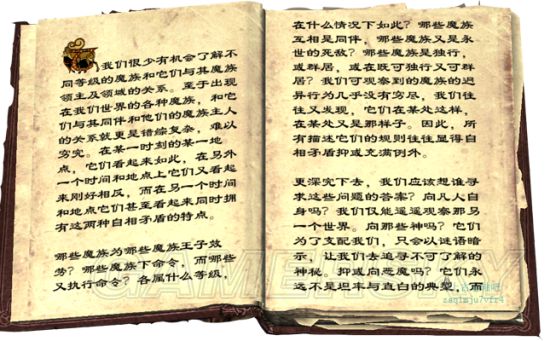 我们很少有机会了解不
同等级的魔族和它们与其魔族
领主及领域的关系。至于出现
在我们世界的各种魔族，和它
们与其同伴和他们的魔族主人
的关系就更是错综复杂，难以
穷究。在某一时刻的某一地
点，它们看起来如此，在另外
一个时间和地点上它们又看起
来刚好相反，而在另一个时间
和地点它们甚至看起来同时拥
有这两种自相矛盾的特点。
哪些魔族为哪些魔族王子效
劳？哪些魔族下命令，而哪些
又执行命令？各属什么等级，
在什么情况下如此？哪些魔族
互相是同伴，哪些魔族又是永
世的死敌？哪些魔族是独行，
或群居，或在既可独行又可群
居？我们可观察到的魔族的迥
异行为几乎没有穷尽，我们往
往又发现，它们在某处这样，
在某处又是那样子。因此，所
有描述它们的规则往往显得自
相矛盾抑或充满例外。
更深究下去，我们应该想谁寻
求这些问题的答案？向凡人自
身吗？我们仅能遥遥观察那另
一个世界。向那些神吗？它们
为了支配我们，只会以谜语暗
示，让我们去追寻不可了解的
神秘。抑或向恶魔吗？它们永
远不是坦率与直白的典型，而
GAMERSKY
zaq1mju7vfr4